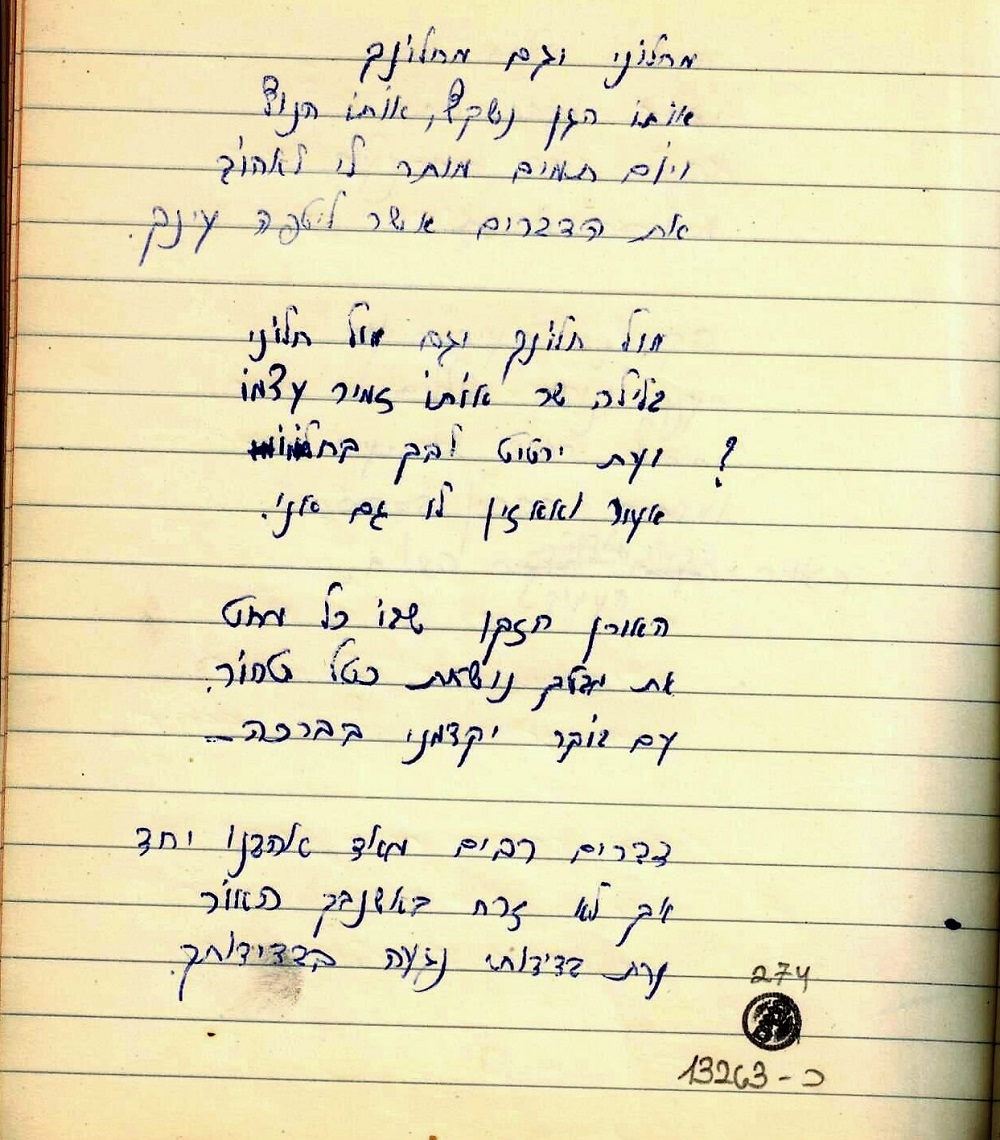 מחלוני וגם מחלונך
אותו הגן נשקף, אותו הנוף
ויום תמים מותר לי לאהוב
את הדברים אשר ליטפה עינך.
מול חלונך וגם מול חלוני
בלילה שר אותו זמיר עצמו
? ועת ירטיט לבך בחלומו
אעור ואאזין לו גם אני.
האורן הזקן שבו כל מחט
את מבטך נושאת כטל טהור.
עם בוקר יקדמני בברכה –
דברים רבים מאד אהבנו יחד
אך לא זרח באשנבך האור
עת בדידותי נגעה בבדידותך.
274
כ-13263